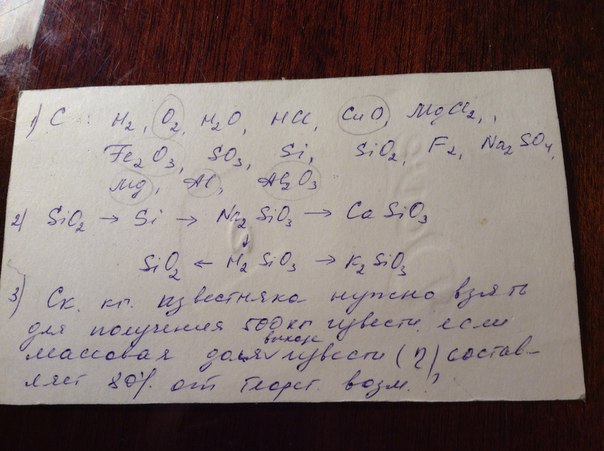 1) C : H₂, O₂, H₂O, HCl, CuO, MgCl₂,
Fe₂O₃, SO₃, Si, SiO₂, F₂, Na₂SO₄,
Mg, Al, Al₂O₃
2) SiO₂ → Si → Na₂SiO₃ → CaSiO₃
↓
SiO₂ ← H₂SiO₃ → K₂SiO₃
3) Ск. кг. известняка нужно взять
для получения 500 кг извести, если
выхода
массовая доля извести (η) состав-
ляет 80% от теорет. возм. ?